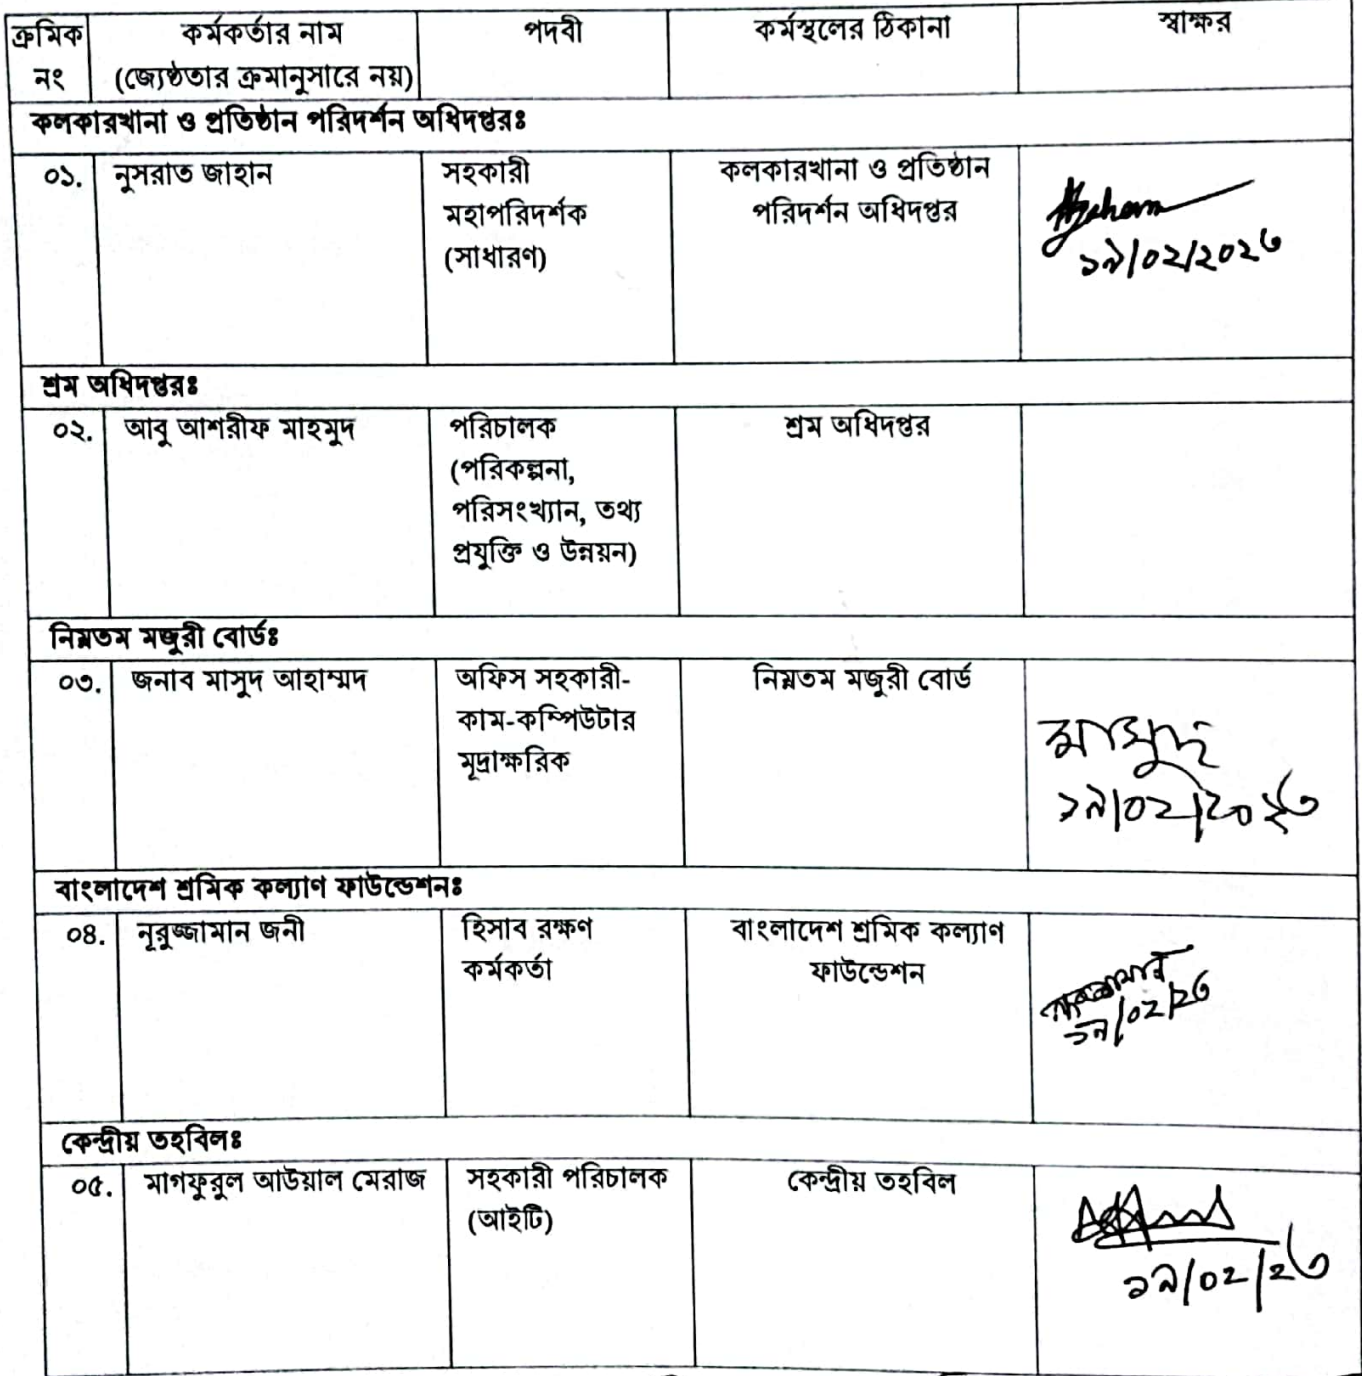 ক্রমিক নং
কর্মকর্তার নাম
(জ্যেষ্ঠতার ক্রমানুসারে নয়)
পদবী
কর্মস্থলের ঠিকানা
স্বাক্ষর
কলকারখানা ও প্রতিষ্ঠান পরিদর্শন অধিদপ্তরঃ
০১.
নুসরাত জাহান
সহকারী
মহাপরিদর্শক
(সাধারণ)
কলকারখানা ও প্রতিষ্ঠান
পরিদর্শন অধিদপ্তর
১৯/০২/২০২৬
শ্রম অধিদপ্তরঃ
০২.
আবু আশরীফ মাহমুদ
পরিচালক
(পরিকল্পনা,
পরিসংখ্যান, তথ্য
প্রযুক্তি ও উন্নয়ন)
শ্রম অধিদপ্তর
নিম্নতম মজুরী বোর্ডঃ
০৩.
জনাব মাসুদ আহাম্মদ
অফিস সহকারী-
কাম-কম্পিউটার
মূদ্রাক্ষরিক
নিম্নতম মজুরী বোর্ড
মাসুদ
১৯/০২/২০২৬
বাংলাদেশ শ্রমিক কল্যাণ ফাউন্ডেশনঃ
০৪.
নূরুজ্জামান জনী
হিসাব রক্ষণ
কর্মকর্তা
বাংলাদেশ শ্রমিক কল্যাণ
ফাউন্ডেশন
১৯/০২/২৬
কেন্দ্রীয় তহবিলঃ
০৫.
মাগফুরুল আউয়াল মেরাজ
সহকারী পরিচালক
(আইটি)
কেন্দ্রীয় তহবিল
১৯/০২/২৬